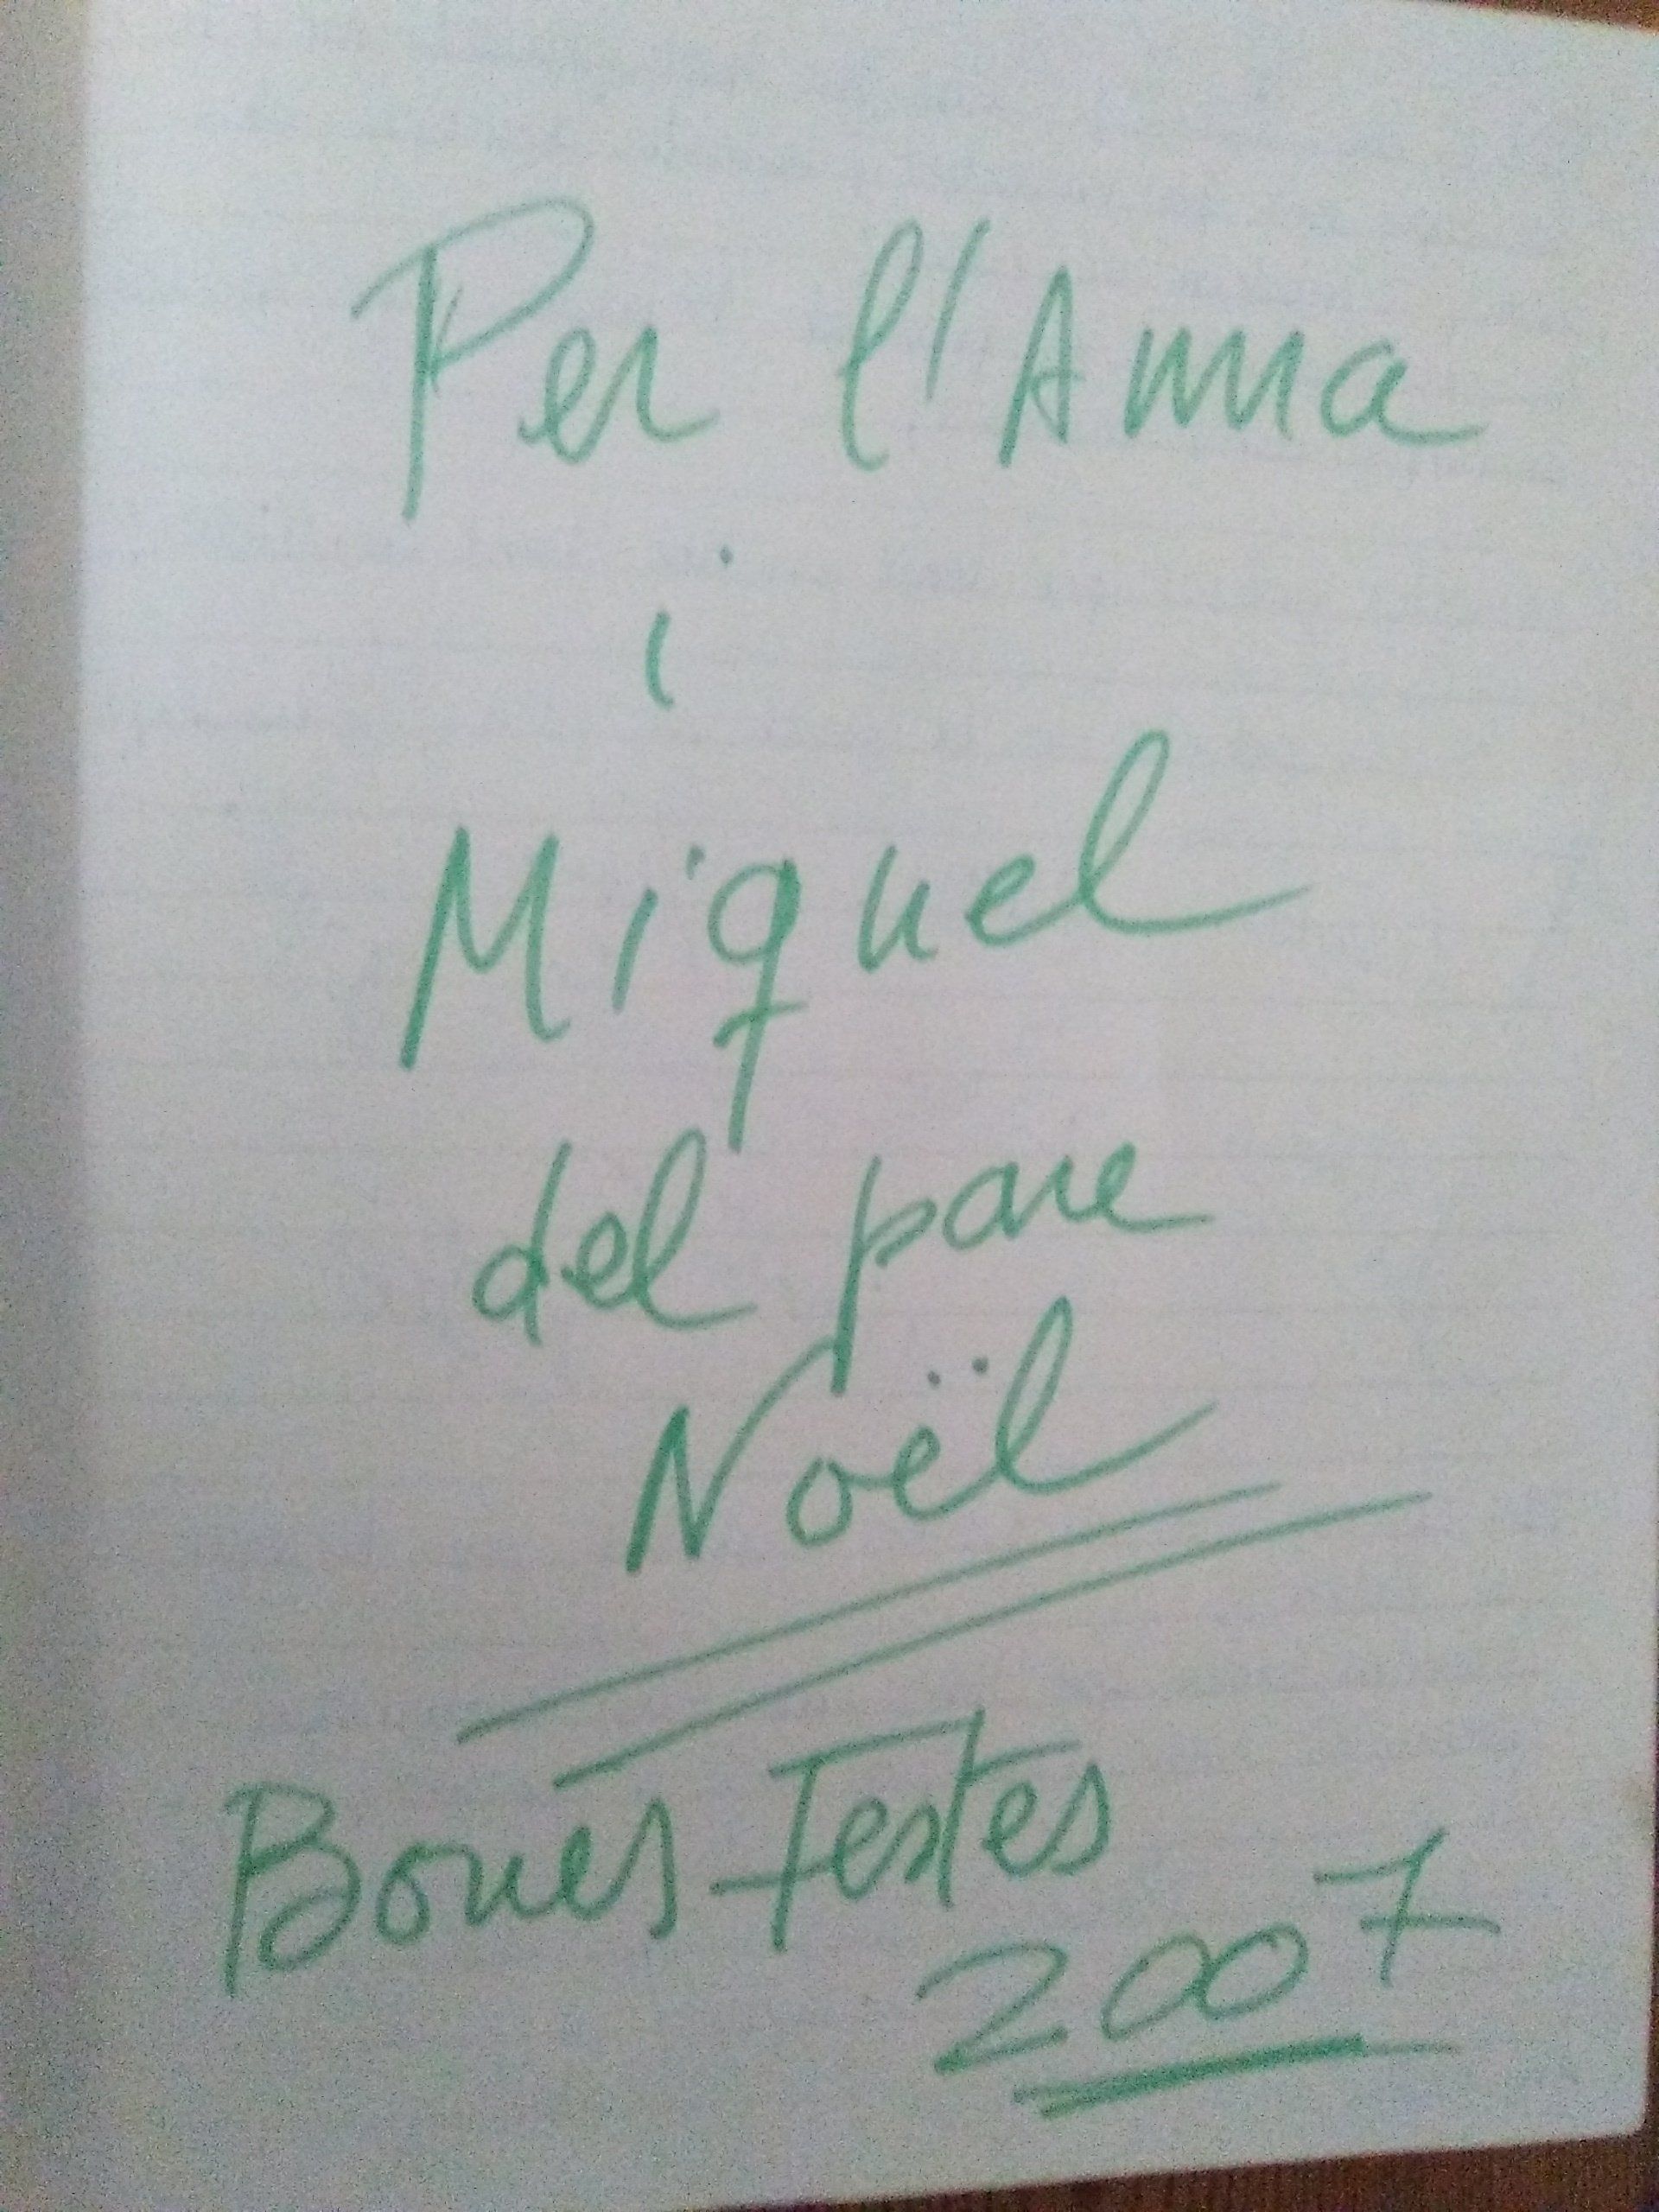 Per l'Anna
i
Miquel
del pare
Noël
Bones Festes
2007